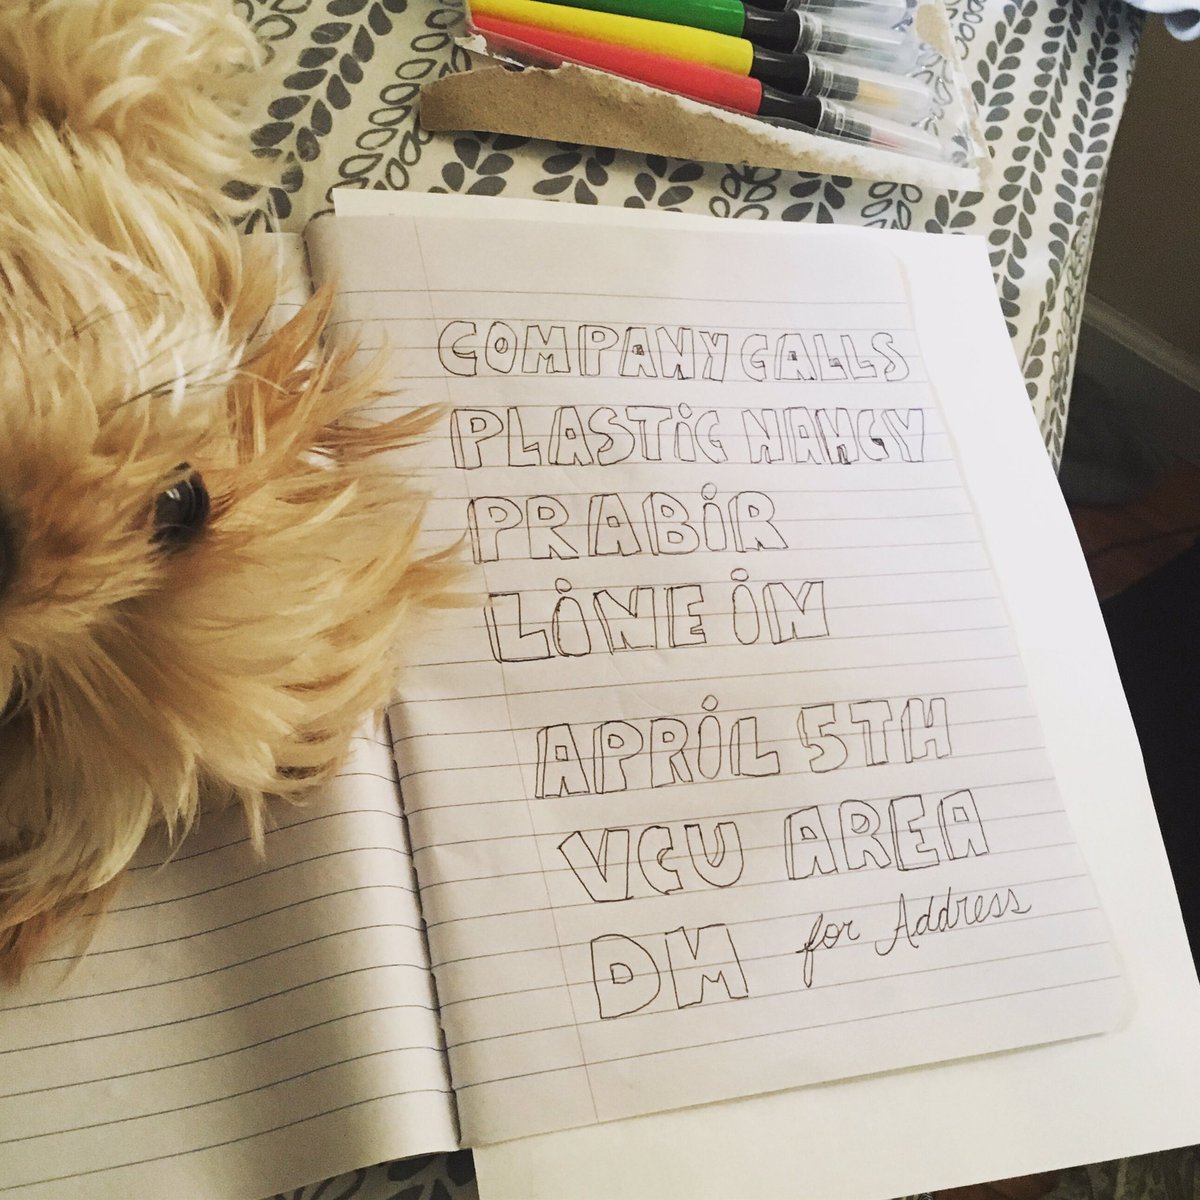 COMPANY CALLS
PLASTiC NANCY
PRABiR
LiNE iN
APRiL 5TH
VCU AREA
DM for Address